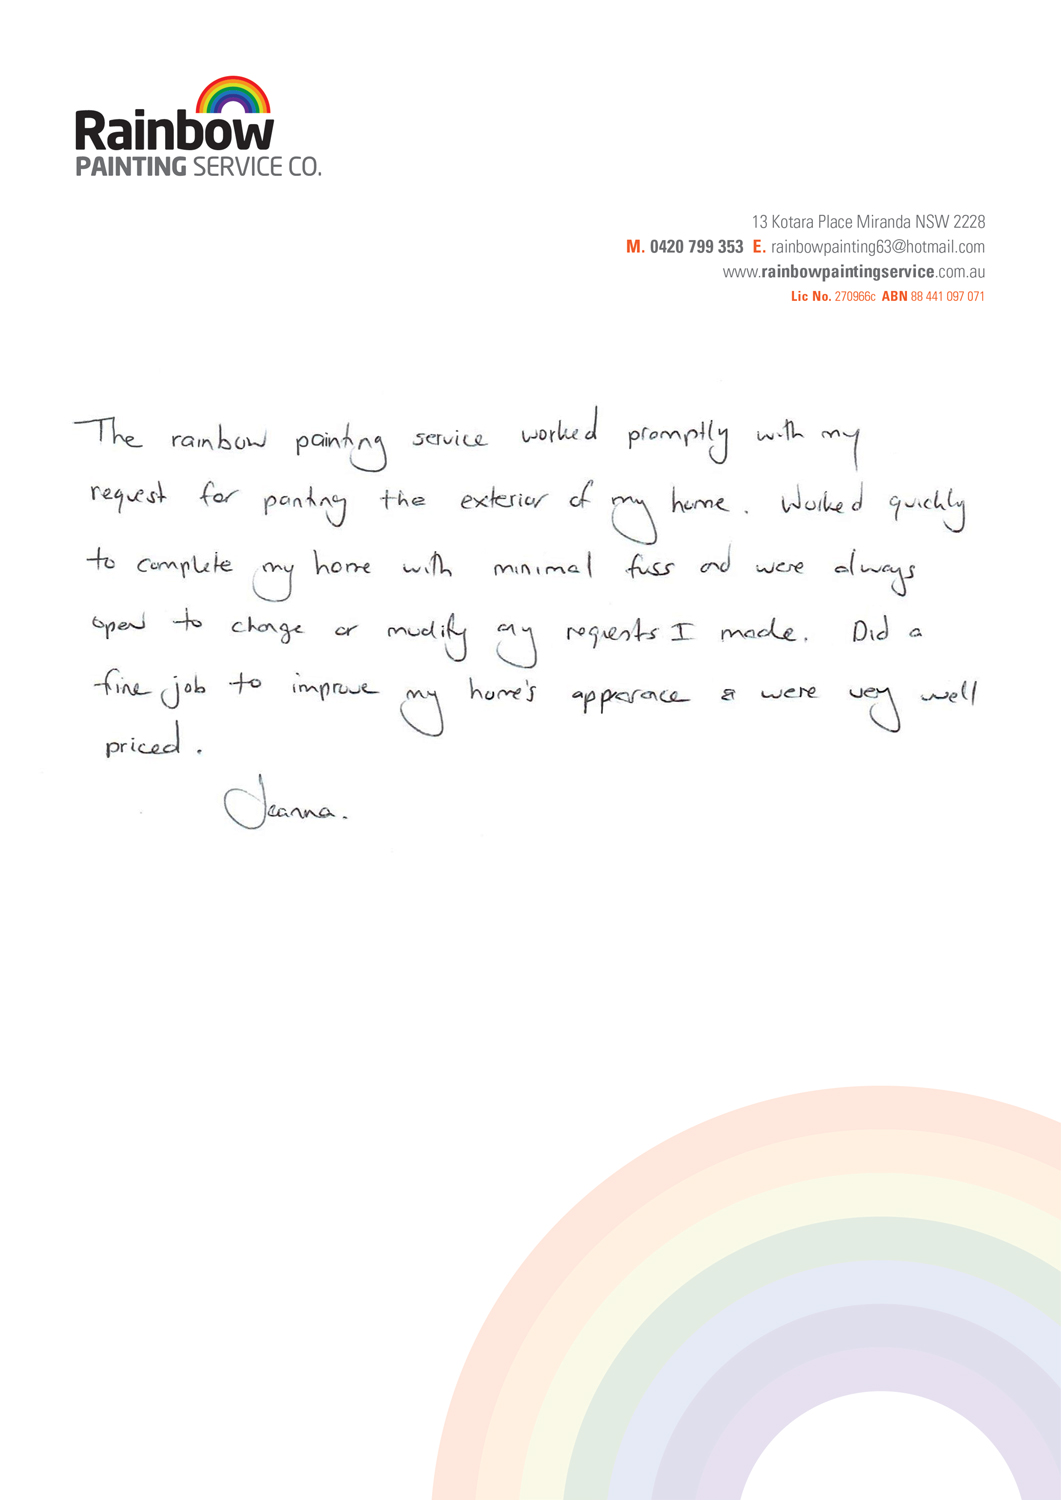 Rainbow
PAINTING SERVICE CO.
13 Kotara Place Miranda NSW 2228
M. 0420 799 353 E. rainbowpainting63@hotmail.com
www.rainbowpaintingservice.com.au
Lic No. 270966c ABN 88 441 097 071
The rainbow painting service worked promptly with my
request for painting the exterior of my home. Worked quickly
to complete my home with minimal fuss and were always
open to change or modify any requests I made. Did a
fine job to improve my home's apperance & were very well
priced.
Jeanna.